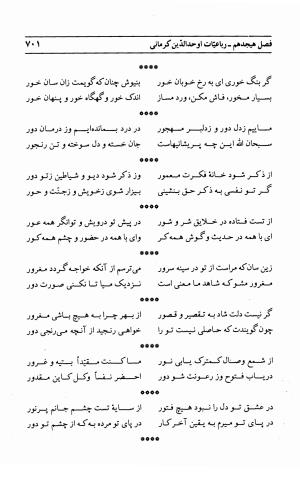 فصل هیجدهم ـ رباعیّات اوحدالدّین کرمانی ۷۰۱
****
گر بنگ خوری ای به رخ خوبان خور بنیوش چنان که گویمت زان سان خور
بسیار مخور، فاش مکن، ورد مساز اندک خور و گهگاه خور و پنهان خور
****
ماییم زدل دور و زدلبر مهجور در درد بمانده‌ایم وز درمان دور
سبحان الله این چه پریشانیهاست جان خسته و دل سوخته و تن رنجور
****
از ذکر شود خانهٔ فکرت معمور وز ذکر شود دیو و شیاطین زتو دور
گر تو نفسی به ذکر حق بنشینی بیزار شوی زخویش و زجنّت و حور
****
از تست فتاده در خلایق شر و شور در پیش تو درویش و توانگر همه عور
ای با همه در حدیث و گوش همه کر وای با همه در حضور و چشم همه کور
****
زین سان که مراست از تو در سینه سرور می‌ترسم از آنکه خواجه گردد مغرور
مغرور مشو که شاهد ما معنی است نزدیک میا تا نکنی صورت دور
****
گر نیست دلت شاد به تقصیر و قصور از بهر چرا به هیچ باشی مغرور
چون گویندت که حاصلی نیست تو را خواهی رنجید از آنچه می‌رنجی دور
****
از شمع وصال کمترک یابی نور ما کنت مقیّداً بتیه و غرور
دریاب فتوح وز رعونت شو دور احضر نفساً وکل کاین مقدور
****
در عشق تو دل را نبود هیچ فتور از سایهٔ تست چشم جانم پرنور
در پای تو میرم به یقین آخر کار در پای تو مرده به که از چشم تو دور
****